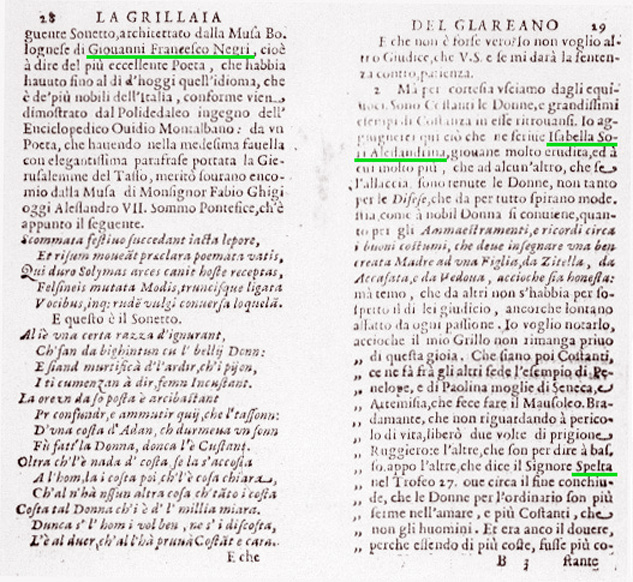 28 LA GRILLAIA
guente Sonetto, architettato dalla Musa Bo-
lognese di Giouanni Francesco Negri, cioè
à dire del più eccellente Poeta, che habbia
hauuto fino al dì d'hoggi quell'idioma, che
è de' più nobili dell'Italia, conforme vien
dimostrato dal Polidedaleo ingegno dell'
Enciclopedico Ouidio Montalbano: da vn
Poeta, che hauendo nella medesima fauella
con elegantissima parafrase portata la Gie-
rusalemme del Tasso, meritò sourano enco-
mio dalla Musa di Monsignor Fabio Ghigi
oggi Alessandro VII. Sommo Pontefice, ch'è
appunto il seguente.
Scommata festiuo succedant iacta lepore,
Et risum moueāt præclara poemata vatis,
Qui duro Solymas arces canit hoste receptas,
Felsineis mutata Modis, truncisque ligata
Vocibus, inq; rudē vulgi conuersa loquelā.
E questo è il Sonetto.
Al iè vna certa razza d'ignurant,
Ch'san da bighintun cu l' bellij Donn:
E siand murtificà d'l'ardir, ch'i pijon,
I ti cumenzan à dir, femn Incustant.
La orexn da so posta è arcibastant
Pr confundr, e ammutir quij, che l'tassonn:
D'vna costa d'Adan, ch durmeua vn sonn
Fù fatt'la Donna, donca l'è Custant.
Oltra ch'l'è nada d' costa se la s'accosta
A l'hom, la i costa poi, ch'l'è cosa chiara,
Ch'al n'hà nssun altra cosa ch'tāto i costa
Costa tal Donna ch'i è d' l' millia miara.
Dunca s' l' hom i vol ben, ne s' i discosta,
L'è al duer, ch'al l'hà prunà Costāt e cara.
E che
DEL GLAREANO 29
E che non è forse vero? Io non voglio al-
tro Giudice, che V.S. e se mi darà la senten-
za contro, patienza.
2 Mà per cortesia vsciamo dagli equi-
uoci. Sono Costanti le Donne, e grandissimi
esempi di Costanza in esse ritrouansi. Io ag-
giugnerei qui ciò che ne scriue Isabella So-
ri Alessandrina, giouane molto erudita, ed à
cui molto più, che ad alcun'altro, che se
l'allaccia, sono tenute le Donne, non tanto
per le Difese, che da per tutto spirano mode-
stia, come à nobil Donna si conuiene, quan-
to per gli Ammaestramenti, e ricordi circa
i buoni costumi, che deue insegnare vna ben
creata Madre ad vna Figlia, da Zitella, da
Accasata, e da Vedoua, accioche sia honesta:
mà temo, che da altri non s'habbia per so-
spetto il di lei giudicio, ancorche lontano
affatto da ogni passione. Io voglio notarlo,
accioche il mio Grillo non rimanga priuo
„ di questa gioia. Che siano poi Costanti,
„ ce ne fà frà gli altri fede l'esempio di Pe-
„ nelope, e di Paolina moglie di Seneca, e
„ Artemisia, che fece fare il Mausoleo. Bra-
„ damante, che non riguardando à perico-
„ lo di vita, liberò due volte di prigione
„ Ruggiero: e l'altre, che son per dire à bas-
„ so, appo l'altre, che dice il Signore Spelta
„ nel Trofeo 27. oue circa il fine conchiu-
„ de, che le Donne per l'ordinario son più
„ ferme nell'amare, e più Costanti, che
„ non gli huomini. Et era anco il douere,
„ perche essendo di più coste, fusse più co-
B 3 stante